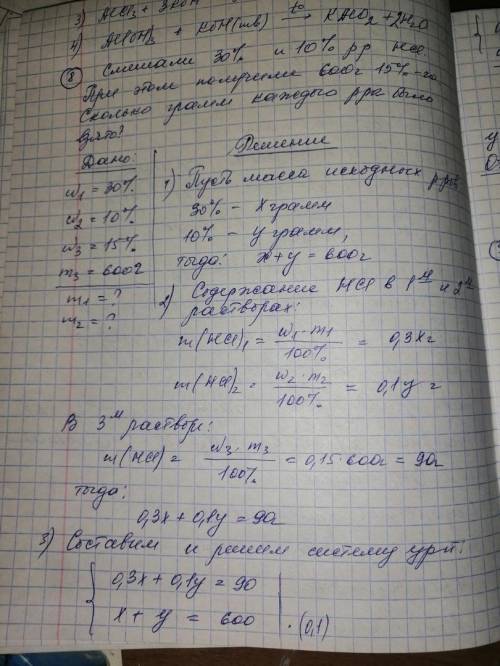 3) AlCl₃ + 3KOH
4) Al(OH)₃ + KOH(тв) t° → KAlO₂ + 2H₂O
⑧ Смешали 30% и 10% р-ра HCl.
При этом получили 600г 15%-го
Сколько грамм каждого р-ра было
взято?
Дано:
ω₁ = 30%
ω₂ = 10%
ω₃ = 15%
m₃ = 600г
m₁ = ?
m₂ = ?
Решение
1) Пусть масса исходных р-ров
30% - x грамм
10% - y грамм,
тогда: x + y = 600г
2) Содержание HCl в 1ᵐ и 2ᵐ
растворах:
m(HCl)₁ = ω₁ · m₁ / 100% = 0,3x г
m(HCl)₂ = ω₂ · m₂ / 100% = 0,1y г
В 3ᵐ растворе:
m(HCl) = ω₃ · m₃ / 100% = 0,15 · 600г = 90г
тогда:
0,3x + 0,1y = 90г
3) Составим и решим систему ур-й:
{ 0,3x + 0,1y = 90
x + y = 600 | · (0,1)